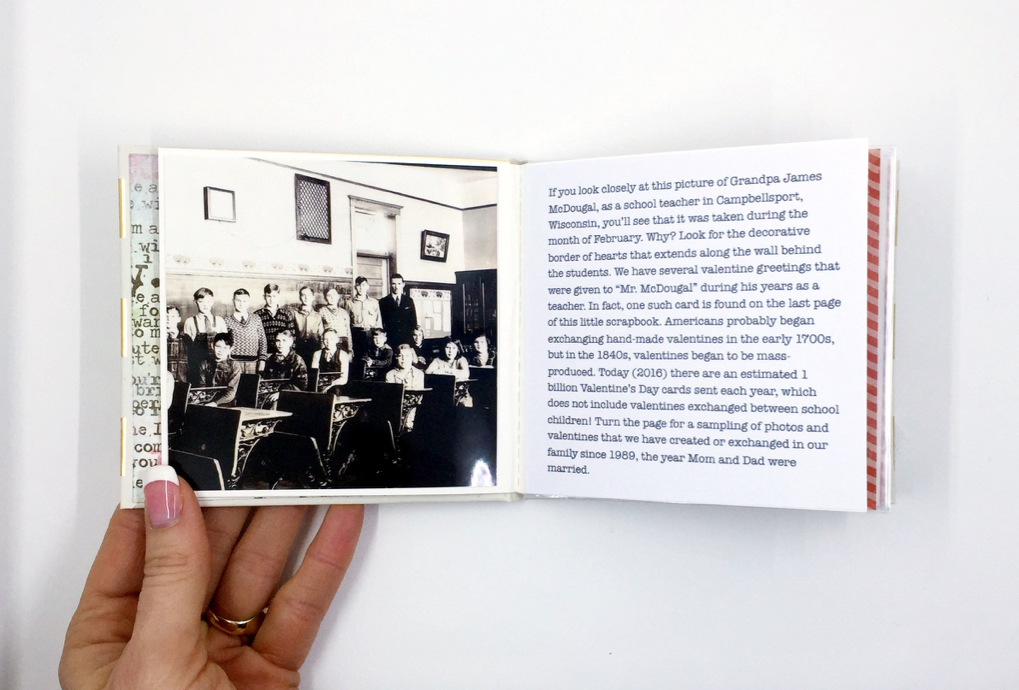 If you look closely at this picture of Grandpa James
McDougal, as a school teacher in Campbellsport,
Wisconsin, you'll see that it was taken during the
month of February. Why? Look for the decorative
border of hearts that extends along the wall behind
the students. We have several valentine greetings that
were given to "Mr. McDougal" during his years as a
teacher. In fact, one such card is found on the last page
of this little scrapbook. Americans probably began
exchanging hand-made valentines in the early 1700s,
but in the 1840s, valentines began to be mass-
produced. Today (2016) there are an estimated 1
billion Valentine's Day cards sent each year, which
does not include valentines exchanged between school
children! Turn the page for a sampling of photos and
valentines that we have created or exchanged in our
family since 1989, the year Mom and Dad were
married.